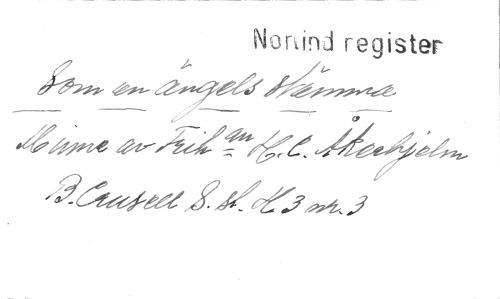 Norlind register
Som en ängels stämma
Minne av Frih:an H. C. Åkerhjelm
B. Crusell S. st. H 3 nr. 3